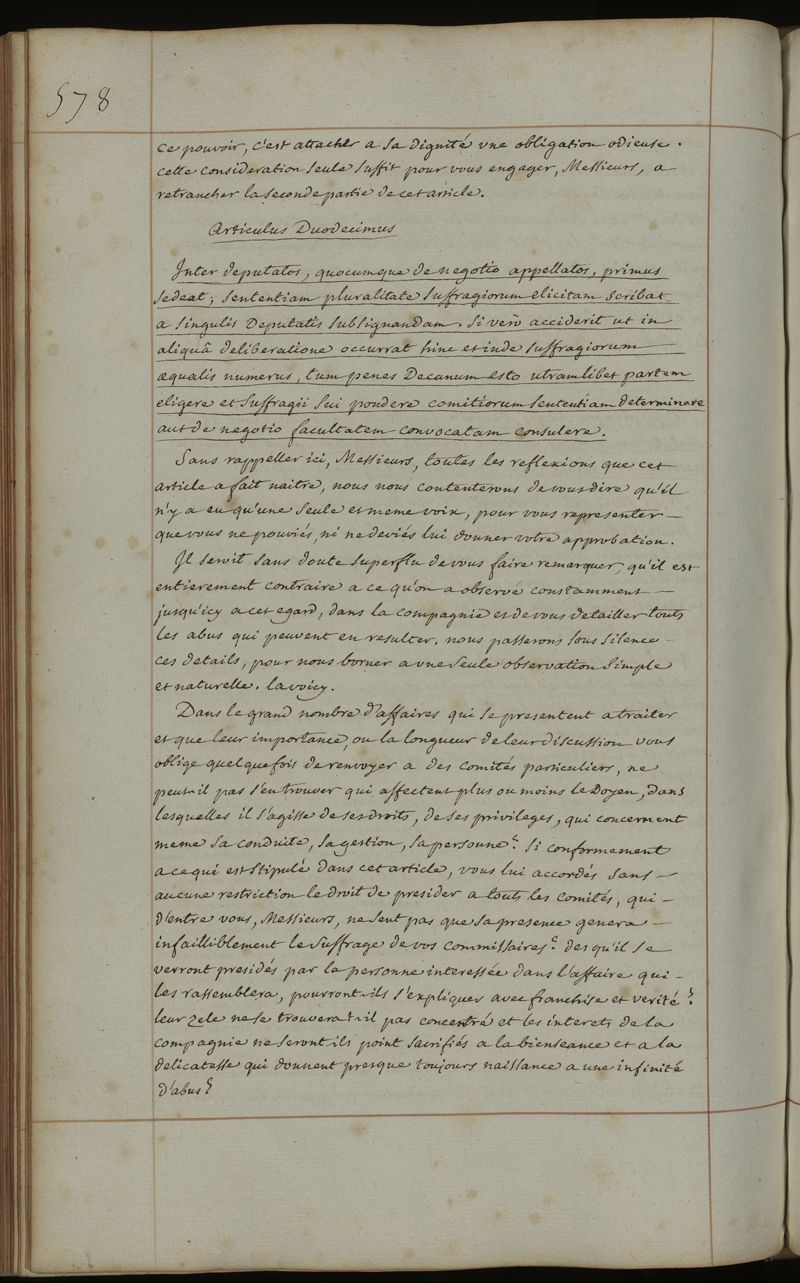 578
ce pouvoir, c'est attacher a sa dignité une obligation odieuse.
cette consideration seule suffit pour vous engager, Messieurs, a
retrancher la seconde partie de cet article.
Articulus Duodecimus
Inter deputatos, quocumque de negotio appellatos, primus
sedeat; sententiam pluralitate suffragiorum elicitam scribat
a singulis Deputatis subsignandam. Si verò acciderit ut in
aliquâ deliberatione occurrat hinc et inde suffragiorum
æqualis numerus, tum penes Decanum esto utramlibet partem
eligere et suffragii sui pondere comitiorum sententiam determinare
aut de negotio facultatem convocatam consulere.
Sans rappeller ici, Messieurs, toutes les reflexions que cet
article a fait naitre, nous nous contenterons de vous dire qu'il
n'y a eu qu'une seule et meme voix, pour vous representer —
que vous ne pouviés, ni ne deviés lui donner votre approbation.
Il seroit sans doute superflu de vous faire remarquer, qu'il est
entierement contraire a ce qu'on a observé constamment —
jusqu'icy a cet egard, dans la compagnie et de vous detailler touts
les abus qui peuvent en resulter. nous passerons sous silence —
ces details, pour nous borner a une seule observation simple
et naturelle. la voicy.
Dans le grand nombre d'affaires qui se presentent a traiter
et que leur importance, ou la longueur de leur discussion vous
oblige quelquefois de renvoyer a des comités particuliers, ne
peut-il pas s'en trouver qui affectent plus ou moins le Doyen, dans
lesquelles il s'agisse de ses droits, de ses privileges, qui concernent
meme sa conduite, sa gestion, sa personne? Si conformement
a ce qui est stipulé dans cet article, vous lui accordés sans —
aucune restriction le droit de presider a touts les comités, qui —
d'entre vous, Messieurs, ne sent pas que sa presence genera —
infailliblement le suffrage de vos commissaires? des qu'il se
verront presidés par la personne interessée dans l'affaire qui —
les rassemblera, pourront-ils s'expliquer avec franchise et verité?
leur zele ne se trouvera t-il pas concentré et les interets de la
compagnie ne seront ils point sacrifiés a la bienseance et a la
delicatesse qui donnent presque toujours naissance a une infinité
d'abus?